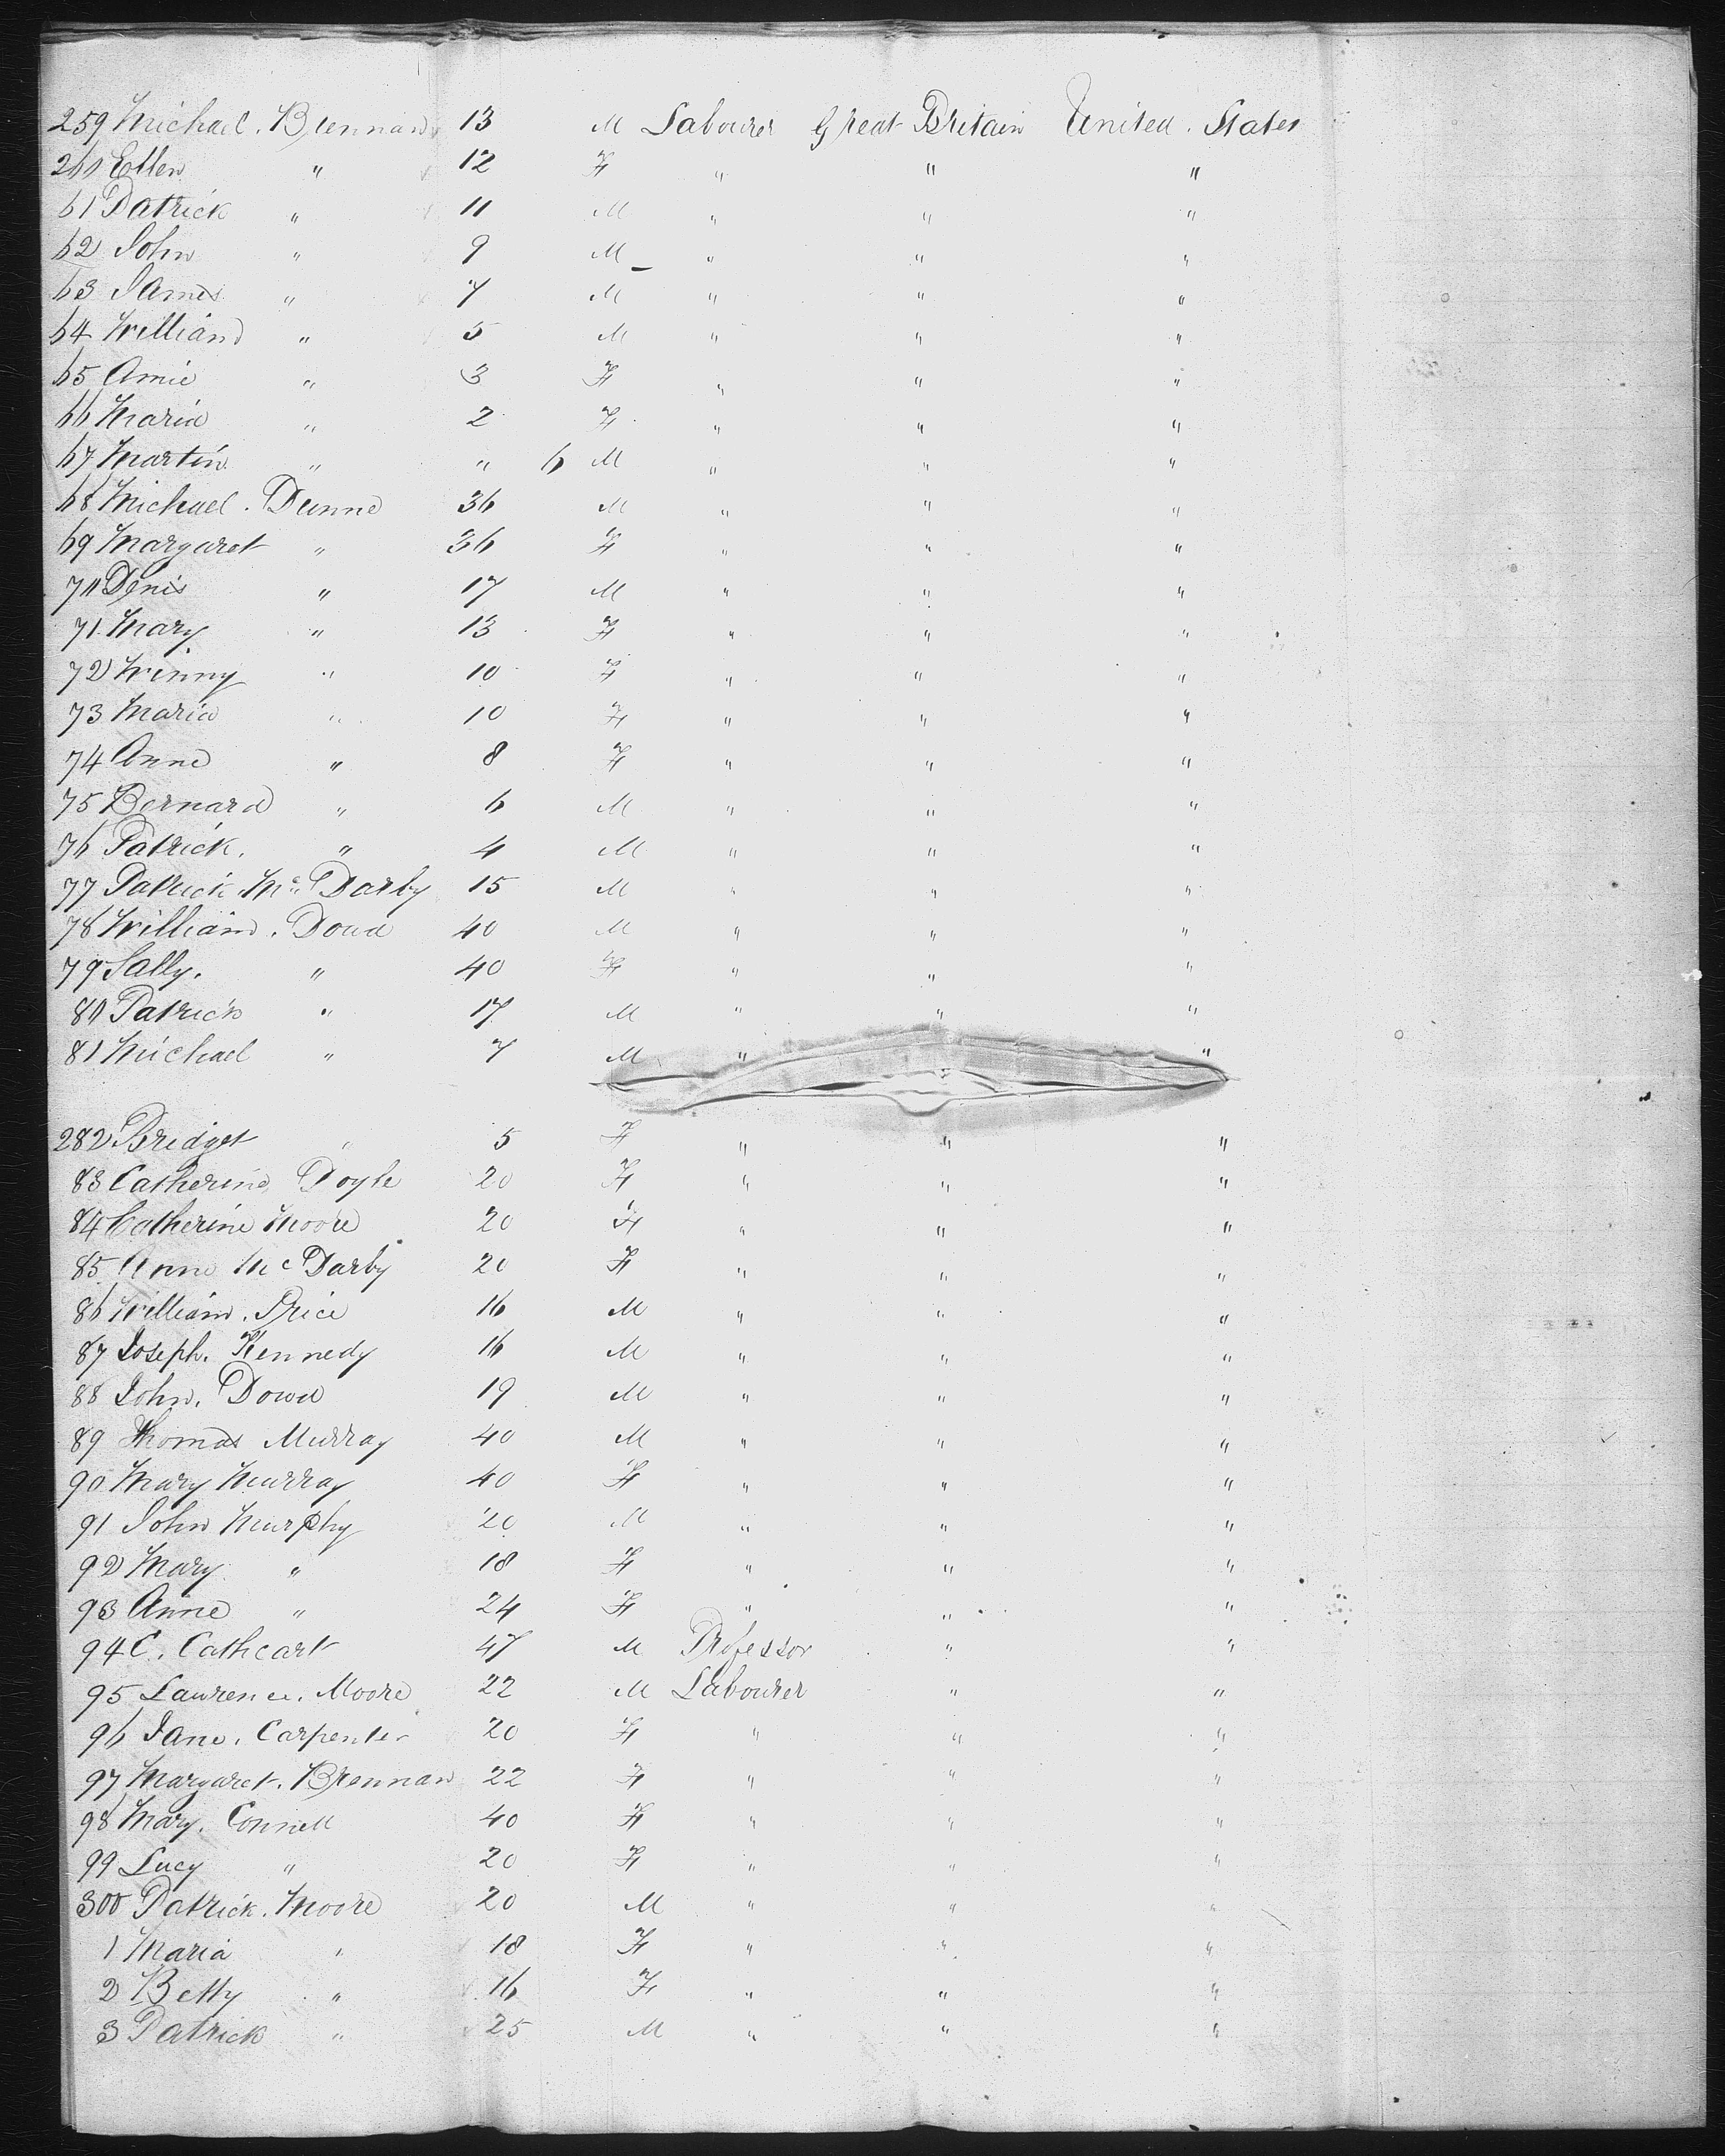 259 Michael. Brennan 13 M Labourer Great Britain United. States
260 Ellen " 12 F " " "
61 Patrick " 11 M " " "
62 John " 9 M " " "
63 James " 7 M " " "
64 William " 5 M " " "
65 Amie " 3 F " " "
66 Maria " 2 F " " "
67 Martin " " 6 M " " "
68 Michael. Dunne 36 M " " "
69 Margaret " 36 F " " "
70 Denis " 17 M " " "
71 Mary " 13 F " " "
72 Winny " 10 F " " "
73 Maria " 10 F " " "
74 Anne " 8 F " " "
75 Bernard " 6 M " " "
76 Patrick. " 4 M " " "
77 Patrick Mc. Darby 15 M " " "
78 William. Doud 40 M " " "
79 Sally. " 40 F " " "
80 Patrick " 17 M " " "
81 Michael " 7 M " "
282 Bridget " 5 F " " "
83 Catherine Doyle 20 F " " "
84 Catherine Moore 20 F " " "
85 Anne Mc Darby 20 F " " "
86 William. Price 16 M " " "
87 Joseph. Kennedy 16 M " " "
88 John. Dowd 19 M " " "
89 Thomas Murray 40 M " " "
90 Mary Murray 40 F " " "
91 John Murphy 20 M " " "
92 Mary " 18 F " " "
93 Anne " 24 F " " "
94 C. Cathcart 47 M Professor " "
95 Lawrence. Moore 22 M Labourer " "
96 Jane. Carpenter 20 F " " "
97 Margaret. Brennan 22 F " " "
98 Mary. Connell 40 F " " "
99 Lucy " 20 F " " "
300 Patrick. Moore 20 M " " "
1 Maria " 18 F " " "
2 Betty " 16 F " " "
3 Patrick " 25 M " " "